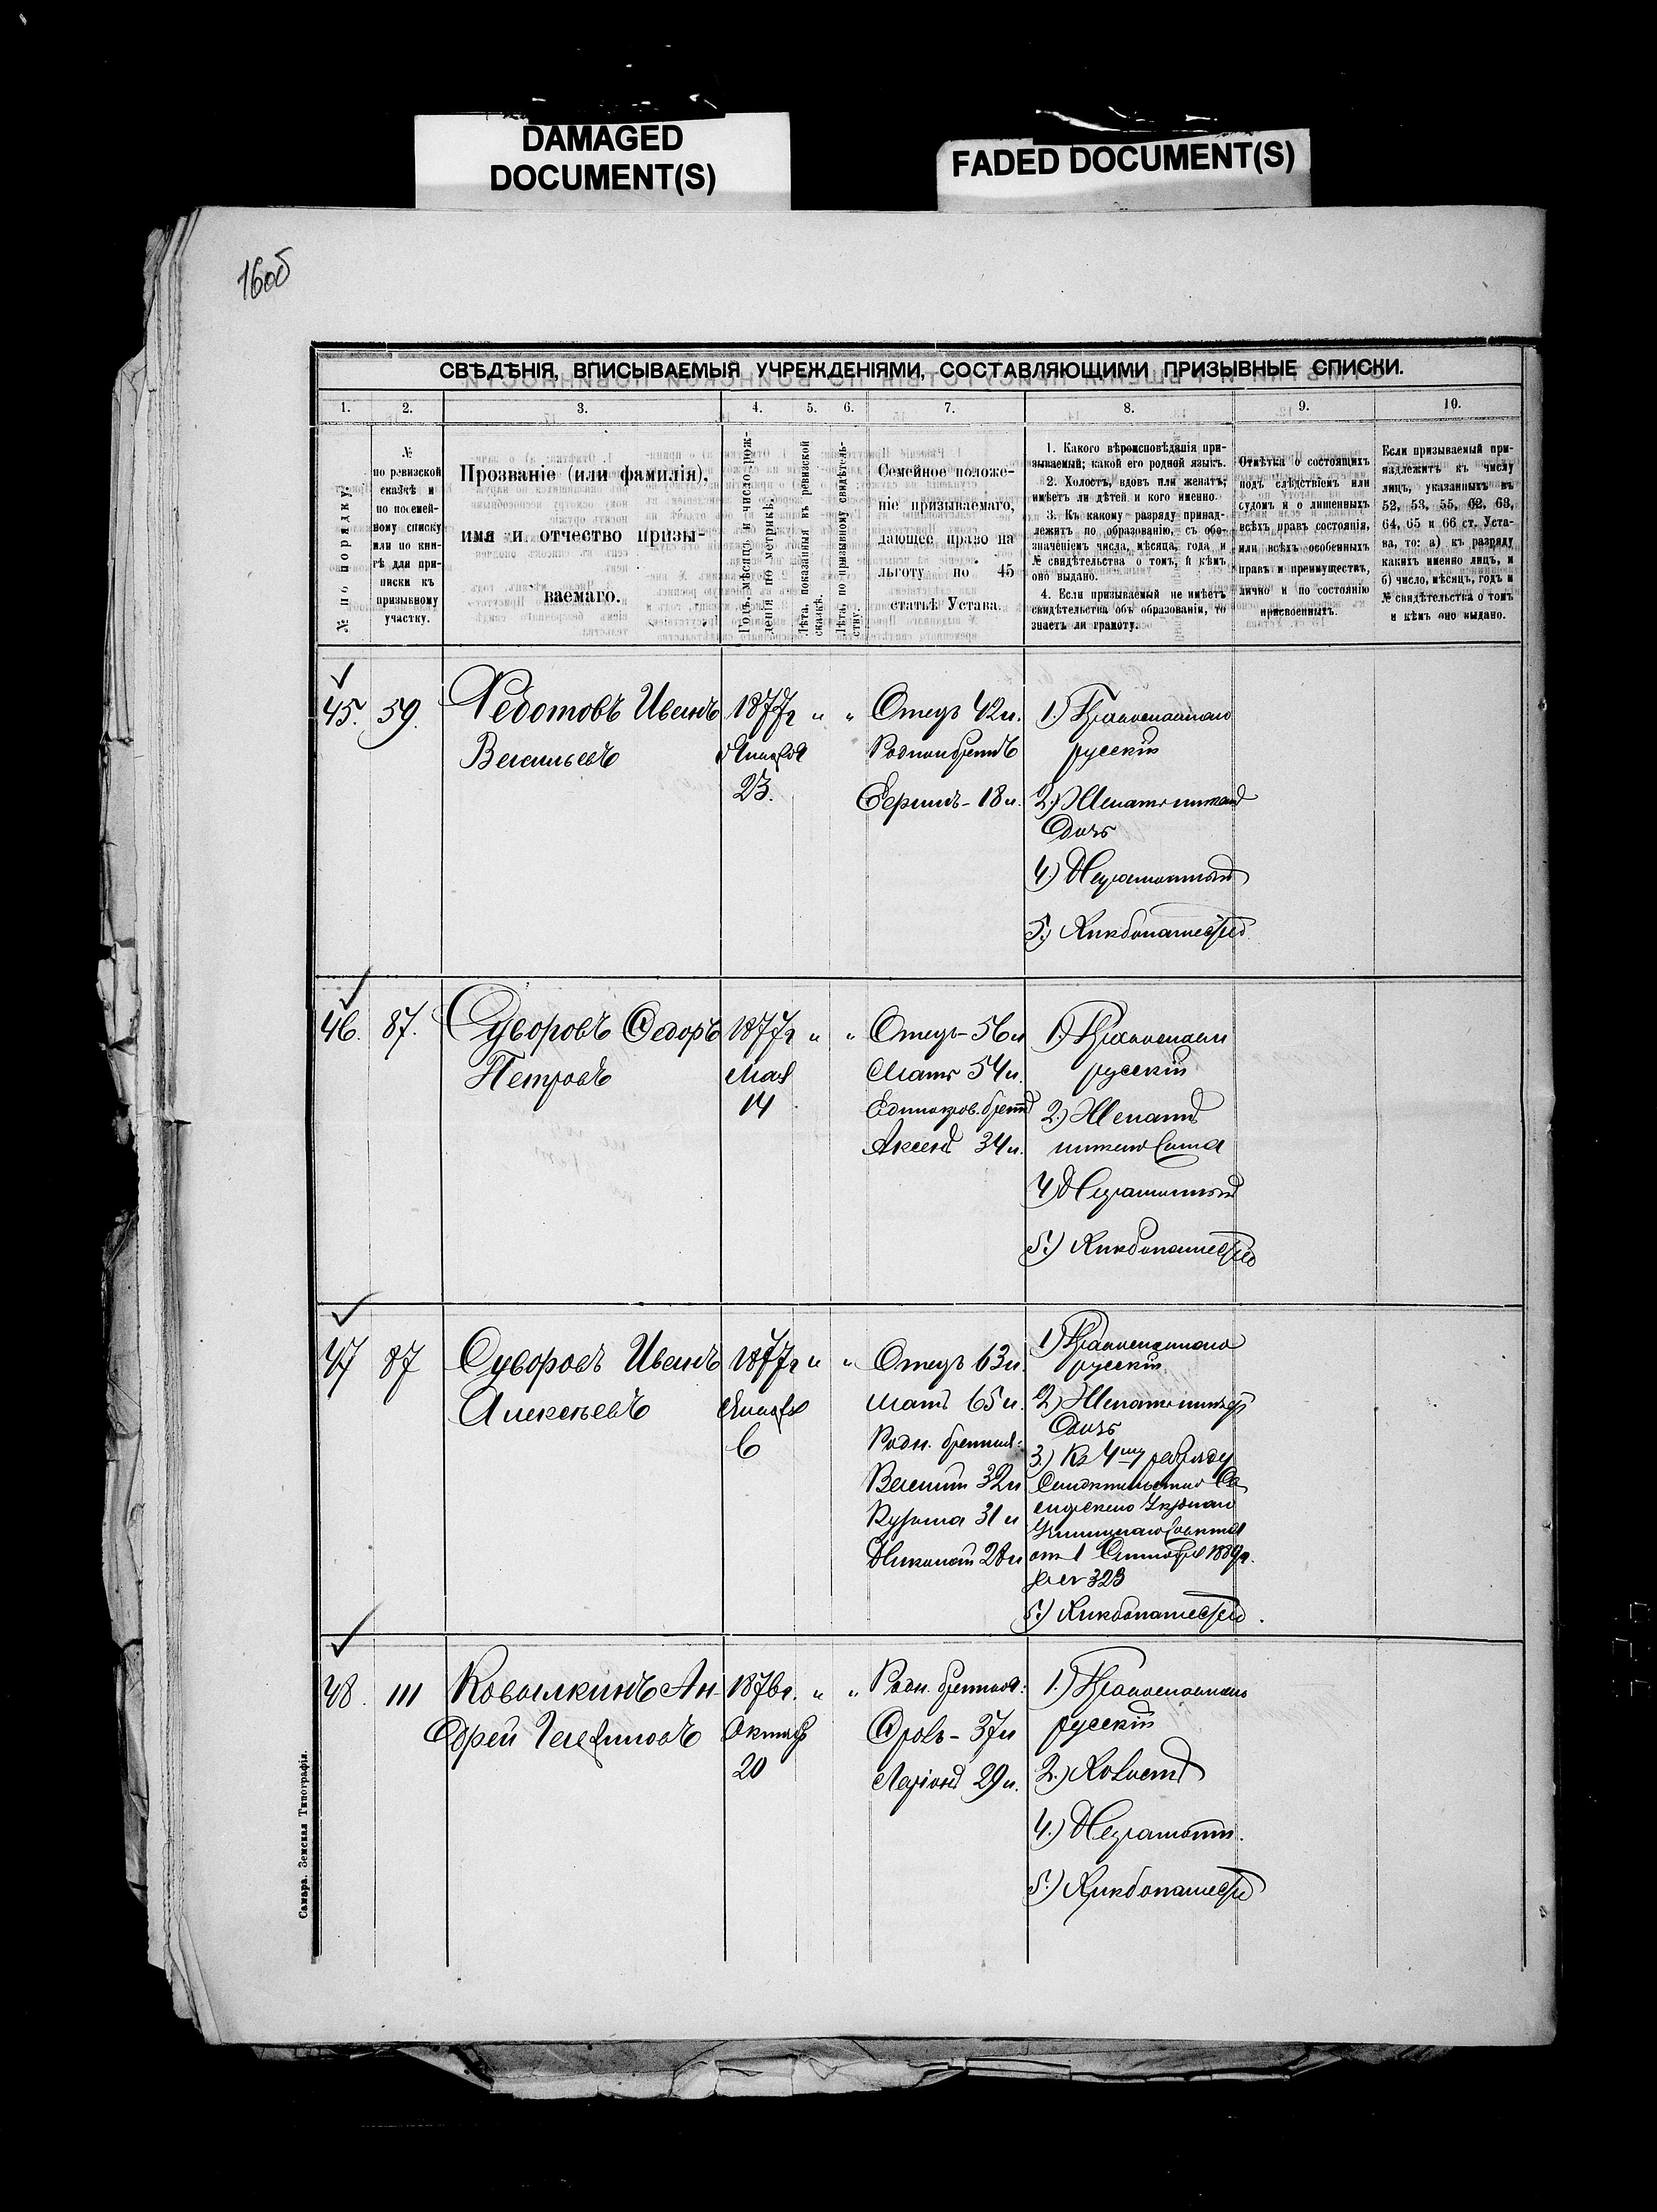 DAMAGED
DOCUMENT(S)
FADED DOCUMENT(S)
16об
СВѢДѢНІЯ, ВПИСЫВАЕМЫЯ УЧРЕЖДЕНІЯМИ, СОСТАВЛЯЮЩИМИ ПРИЗЫВНЫЕ СПИСКИ.
1. 2. 3. 4. 5. 6. 7. 8. 9. 10.
№ по порядку.
№
по ревизской
сказкѣ и
по посемей-
ному списку
или по кни-
гѣ для при-
писки къ
призывному
участку.
Прозваніе (или фамилія),
имя и отчество призы-
ваемаго.
Годъ, мѣсяцъ и число рож-
денія по метрикѣ.
Лѣта, показанныя въ ревизской
сказкѣ.
Лѣта, по призывному свидѣтель-
ству.
Семейное положе-
ніе призываемаго,
дающее право на
льготу по 45
статьѣ Устава.
1. Какого вѣроисповѣданія при-
зываемый; какой его родной языкъ.
2. Холостъ, вдовъ или женатъ;
имѣетъ ли дѣтей и кого именно.
3. Къ какому разряду принад-
лежитъ по образованію, съ обо-
значеніемъ числа, мѣсяца, года и
№ свидѣтельства о томъ, и кѣмъ
оно выдано.
4. Если призываемый не имѣетъ
свидѣтельства объ образованіи, то
знаетъ ли грамоту.
Отмѣтка о состоящихъ
подъ слѣдствіемъ или
судомъ и о лишенныхъ
всѣхъ правъ состоянія,
или всѣхъ особенныхъ
правъ и преимуществъ,
лично и по состоянію
присвоенныхъ.
Если призываемый при-
надлежитъ къ числу
лицъ, указанныхъ въ
52, 53, 55, 62, 63,
64, 65 и 66 ст. Уста-
ва, то: а) къ разряду
какихъ именно лицъ, и
б) число, мѣсяцъ, годъ и
№ свидѣтельства о томъ
и кѣмъ оно выдано.
45. 59.
Федотовъ Иванъ
Васильевъ
1877г " "
Января
23.
Отецъ 42л.
Родной братъ
18л.
1.) Православнаго
русскій
2.) Женатъ имѣетъ
Дочь
4.) Неграмотный
5.) Хлѣбопашество
46. 87.
Суворовъ Федоръ
Петровъ
1877г " "
Мая
14
Отецъ 56л
Мать 54л.
Единокров. братъ
34л.
1.) Православн
русскій
2.) Женатъ
имѣетъ Сына
4) Неграмотный
5.) Хлѣбопашество
47 87
Суворовъ Иванъ
Алексѣевъ
1877г " "
Января
6
Отецъ 63л.
мать 65л.
Родн. братья:
Василій 32л
Кузьма 31л
Николай 28л
1) Православнаго
русскій
2) Женатъ имѣетъ
Дочь
3) Къ 4му разряду
Свидѣтельство
Училищнаго Совѣта
отъ 1 Сентября 1889г.
за № 323
5.) Хлѣбопашество.
48. 111
Ковылкинъ Ан-
дрей
1876г. " "
Октяб
20
Родн. братья:
Фролъ - 37л
Ларіонъ 29л.
1.) Православнаго
русскій
2.) Холостъ
4.) Неграмотн.
5.) Хлѣбопашество
Самара. Земская Типографія.